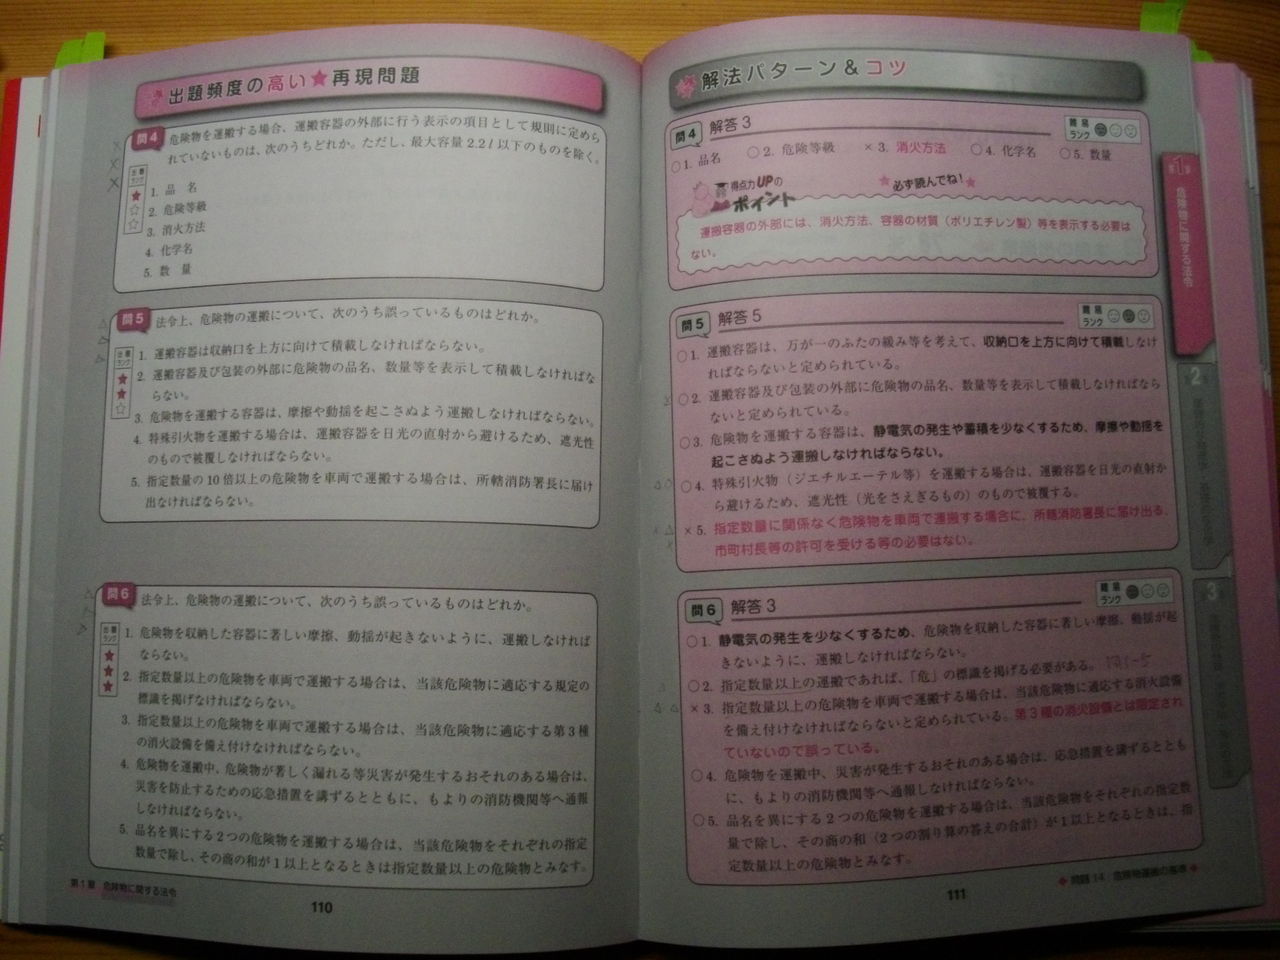 出題頻度の高い★再現問題
問4 危険物を運搬する場合、運搬容器の外部に行う表示の項目として規則に定めら
れていないものは、次のうちどれか。ただし、最大容量2.2l以下のものを除く。
出題
ランク
★☆☆
1. 品 名
2. 危険等級
3. 消火方法
4. 化学名
5. 数 量
問5 法令上、危険物の運搬について、次のうち誤っているものはどれか。
出題
ランク
★★☆
1. 運搬容器は収納口を上方に向けて積載しなければならない。
2. 運搬容器及び包装の外部に危険物の品名、数量等を表示して積載しなければな
らない。
3. 危険物を運搬する容器は、摩擦や動揺を起こさぬよう運搬しなければならない。
4. 特殊引火物を運搬する場合は、運搬容器を日光の直射から避けるため、遮光性
のもので被覆しなければならない。
5. 指定数量の10倍以上の危険物を車両で運搬する場合は、所轄消防署長に届け
出なければならない。
問6 法令上、危険物の運搬について、次のうち誤っているものはどれか。
出題
ランク
★★★
1. 危険物を収納した容器に著しい摩擦、動揺が起きないように、運搬しなければ
ならない。
2. 指定数量以上の危険物を車両で運搬する場合は、当該危険物に適応する規定の
標識を掲げなければならない。
3. 指定数量以上の危険物を車両で運搬する場合は、当該危険物に適応する第3種
の消火設備を備え付けなければならない。
4. 危険物を運搬中、危険物が著しく漏れる等災害が発生するおそれのある場合は、
災害を防止するための応急措置を講ずるとともに、もよりの消防機関等へ通報
しなければならない。
5. 品名を異にする2つの危険物を運搬する場合は、当該危険物をそれぞれの指定
数量で除し、その商の和が1以上となるときは指定数量以上の危険物とみなす。
第1章 危険物に関する法令
110
解法パターン&コツ
問4 解答3
難易
ランク
○1. 品名 ○2. 危険等級 ×3. 消火方法 ○4. 化学名 ○5. 数量
得点力UPの
ポイント
★必ず読んでね!★
運搬容器の外部には、消火方法、容器の材質(ポリエチレン製)等を表示する必要は
ない。
問5 解答5
難易
ランク
○1. 運搬容器は、万が一のふたの緩み等を考えて、収納口を上方に向けて積載しなけ
ればならないと定められている。
○2. 運搬容器及び包装の外部に危険物の品名、数量等を表示して積載しなければなら
ないと定められている。
○3. 危険物を運搬する容器は、静電気の発生や蓄積を少なくするため、摩擦や動揺を
起こさぬよう運搬しなければならない。
○4. 特殊引火物(ジエチルエーテル等)を運搬する場合は、運搬容器を日光の直射か
ら避けるため、遮光性(光をさえぎるもの)のもので被覆する。
×5. 指定数量に関係なく危険物を車両で運搬する場合に、所轄消防署長に届け出る、
市町村長等の許可を受ける等の必要はない。
問6 解答3
難易
ランク
○1. 静電気の発生を少なくするため、危険物を収納した容器に著しい摩擦、動揺が起
きないように、運搬しなければならない。
○2. 指定数量以上の運搬であれば、「危」の標識を掲げる必要がある。
×3. 指定数量以上の危険物を車両で運搬する場合は、当該危険物に適応する消火設備
を備え付けなければならないと定められている。第3種の消火設備とは限定され
ていないので誤っている。
○4. 危険物を運搬中、災害が発生するおそれのある場合は、応急措置を講ずるととも
に、もよりの消防機関等へ通報しなければならない。
○5. 品名を異にする2つの危険物を運搬する場合は、当該危険物をそれぞれの指定数
量で除し、その商の和(2つの割り算の答えの合計)が1以上となるときは、指
定数量以上の危険物とみなす。
111
◆問題14:危険物運搬の基準◆
第1章
危険物に関する法令
2
3